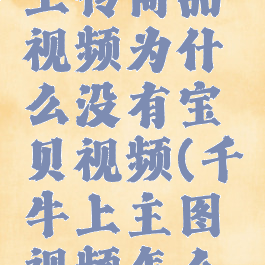 上传商品
视频为什
么没有宝
贝视频(千
牛上主图
视频怎么